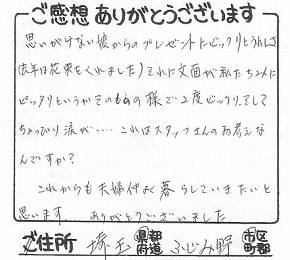 ご感想ありがとうございます
思いがけない彼からのプレゼントにビックリとうれしさ
(去年は花束をくれました)それに文面が私たち2人に
ピッタリというかそのものの様で2度ビックリ、そして
ちょっぴり涙が‥‥ これはスタッフさんのお考えな
んですか?
これからも夫婦仲よく暮らしていきたいと
思います ありがとうございました
ご住所 埼玉 都道府県 ふじみ野 市区町郡